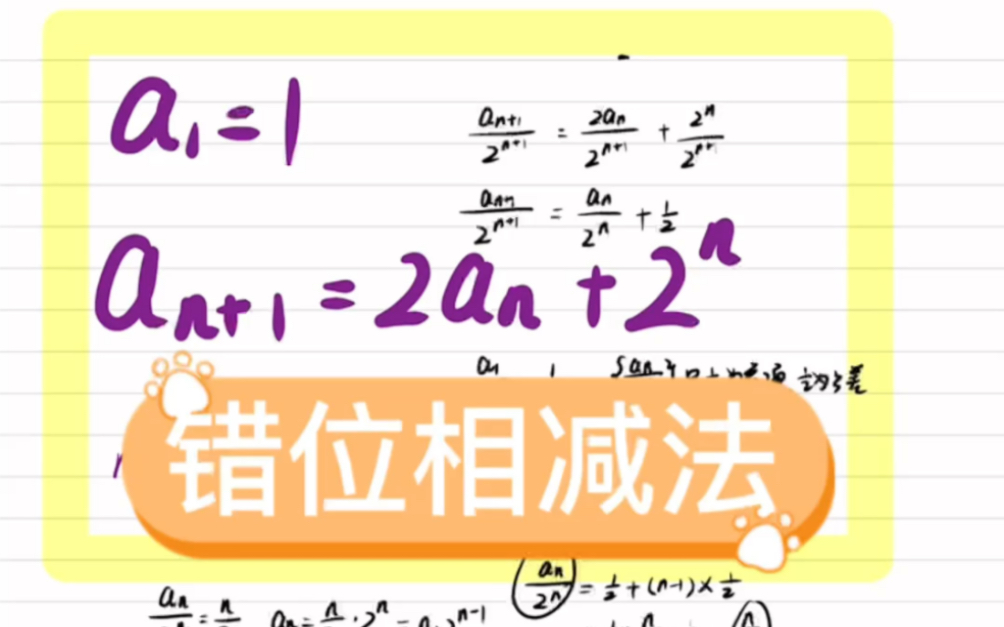 a₁=1
aₙ₊₁/2ⁿ⁺¹ = 2aₙ/2ⁿ⁺¹ + 2ⁿ/2ⁿ⁺¹
aₙ₊₁/2ⁿ⁺¹ = aₙ/2ⁿ + 1/2
aₙ₊₁=2aₙ+2ⁿ
错位相减法
aₙ/2ⁿ = 1/2+(n-1)×1/2
aₙ = n/2·2ⁿ = n·2ⁿ⁻¹